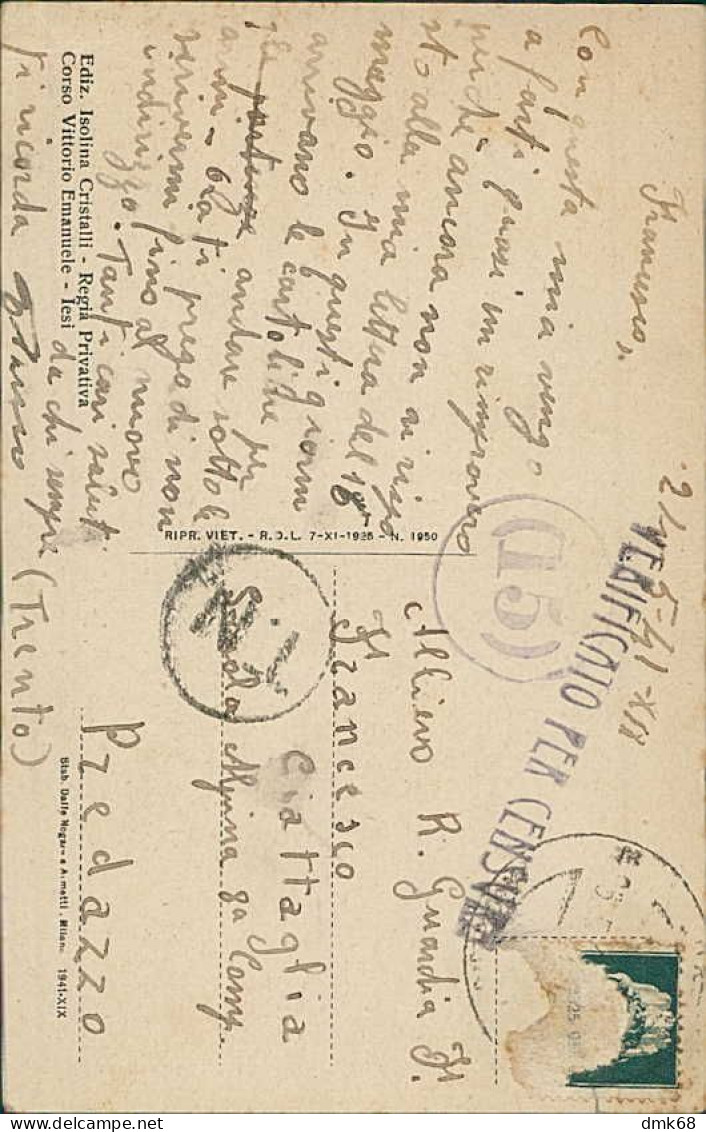 21-5-41-XIX
Francesco,
Con questa mia vengo
a farti quasi un rimprovero
perché ancora non ai rispo
sto alla mia lettera del 18
maggio. In questi giorni
arrivano le cartoline
per andare sotto le
armi - ti prego di non
scrivermi fino al nuovo
indirizzo. Tanti cari saluti
da chi sempre
ti ricorda
Ediz. Isolina Cristalli - Regia Privativa
Corso Vittorio Emanuele - Iesi
RIPR. VIET. - R.D.L. 7-XI-1925 - N. 1950
(15)
VERIFICATO PER CENSURA
Allievo R. Guardia F.
Francesco
Ciattaglia
Scuola Alpina 8ª Comp.
Predazzo
(Trento)
Stab. Dalle Nogare e Armetti - Milano 1941-XIX
dmk68